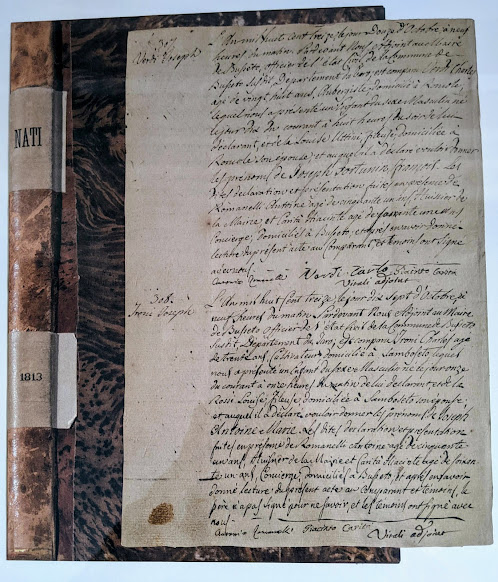 NATI
1813
307
Verdi Joseph
L'an mil huit cent treize, le jour douze d'Octobre, à neuf
heures du matin, Pardevant Nous Adjoint au Maire
de Busseto, officier de l'Etat Civil de la Commune de
Busseto susdit, Département du Taro, est comparu Verdi Charles
agé de vingt huit ans, Aubergiste domicilié à Roncole,
lequel nous a présenté un Enfant du sexe Masculin né
le jour dix du courant à huit heures du soir, de lui
déclarant, et de la Louise Uttini, fileuse, domiciliée à
Roncole, son épouse, et auquel il a déclaré vouloir donner
les prénoms de Joseph Fortunin François. Les
dites déclaration et présentation faites en présence de
Romanelli Antoine agé de cinquante un ans, Huissier de
la Mairie, et Cantù Hiacinte agé de soixante un ans
Concierge, Domiciliés à Busseto, et après en avoir donné
lecture du présent acte aux comparant et témoins ont signé
avec nous.
Antonio Romanelli Verdi Carlo Giacinto Cantù
Vitali adjoint
308.
Joseph
L'an mil huit cent treize, le jour dix sept d'Octobre, à
neuf heures du matin, Pardevant Nous Adjoint au Maire
de Busseto officier de l'Etat Civil de la Commune de Busseto
susdit, Département du Taro, est comparu Charles agé
de trente ans, Cultivateur domicilié à Samboseto lequel
nous a présenté un Enfant du sexe Masculin né le jour onze
du courant à onze heures du matin de lui déclarant, et de la
Rossi Louise, fileuse, domiciliée à Samboseto son épouse,
et auquel il a déclaré vouloir donner les prénoms de Joseph
Antoine Marie. Les dites déclaration et présentation
faites en présence de Romanelli Antoine agé de cinquante
un ans, Huissier de la Mairie et Cantù Hiacinte agé de soixan-
te un ans, Concierge, domiciliés à Busseto, et après en avoir
donné lecture du présent acte au comparant et témoins, le
père n'a pas signé pour ne savoir, et les témoins ont signé avec
nous.
Antonio Romanelli Giacinto Cantù
Vitali adjoint